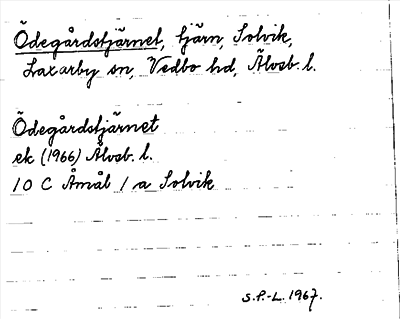 Ödegårdstjärnet, tjärn, Solvik,
Laxarby sn, Vedbo hd, Älvsb. l.
Ödegårdstjärnet
ek (1966) Älvsb. l.
10 C Åmål 1 a Solvik
S.P.-L. 1967.